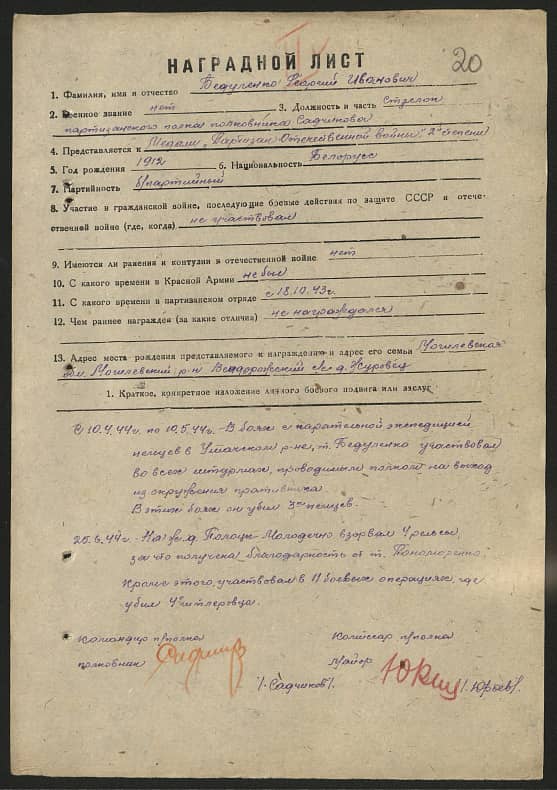 20
НАГРАДНОЙ ЛИСТ
1. Фамилия, имя и отчество Бедуленко Георгий Иванович
2. Военное звание нет 3. Должность и часть Стрелок
партизанского полка полковника Садчикова
4. Представляется к Медали „Партизан Отечественной войны" 2ой степени
5. Год рождения 1912 6. Национальность Белорусс
7. Партийность б/партийный
8. Участие в гражданской войне, последующие боевые действия по защите СССР и отече-
ственной войне (где, когда) не участвовал
9. Имеются ли ранения и контузии в отечественной войне нет
10. С какого времени в Красной Армии не был
11. С какого времени в партизанском отряде с 18.10.43г.
12. Чем раннее награжден (за какие отличия) не награждался
13. Адрес места рождения представляемого к награждению и адрес его семьи Могилевская
обл. Могилевский р-н Вендорожский с/с д. Журовец
1. Краткое, конкретное изложение личного боевого подвига или заслуг
С 10.4.44г. по 10.5.44г. – В боях с карательной экспедицией
немцев в Ушачском р-не, т. Бедуленко участвовал
во всех штурмах, проводимых полком на выход
из окружения противника.
В этих боях он убил 3х немцев.
25.6.44г. – На ж.д. Полоцк-Молодечно взорвал 4 рельсы,
за что получена благодарность от т. Пономоренко.
Кроме этого, участвовал в 11 боевых операциях, где
убил 4х гитлеровца.
Командир п/полка Комиссар п/полка
полковник Майор
/. Садчиков/. /. Юрьев/.